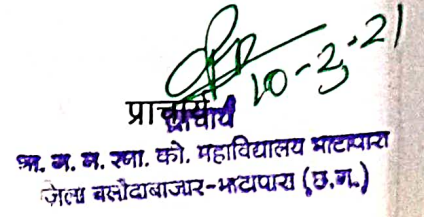 10-2-21
प्राचार्य
प्राचार्य
शा. ग. न. स्ना. को. महाविद्यालय भाटापारा
जिला बलौदाबाजार-भाटापारा (छ.ग.)